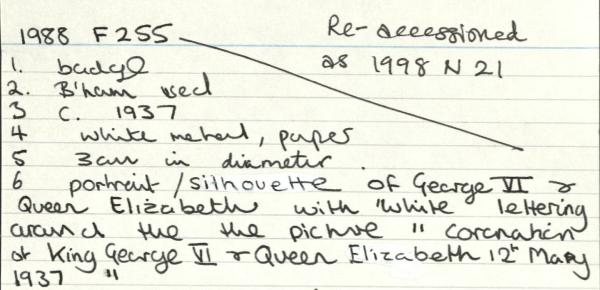 1988 F255 Re-accessioned
as 1998 N 21
1. badge
2. B'ham used
3 C. 1937
4 white metal, paper
5 3cm in diameter.
6 portrait/silhouette of George VI &
Queen Elizabeth with "white lettering
around the the picture " coronation
of King George VI & Queen Elizabeth 12th May
1937 "